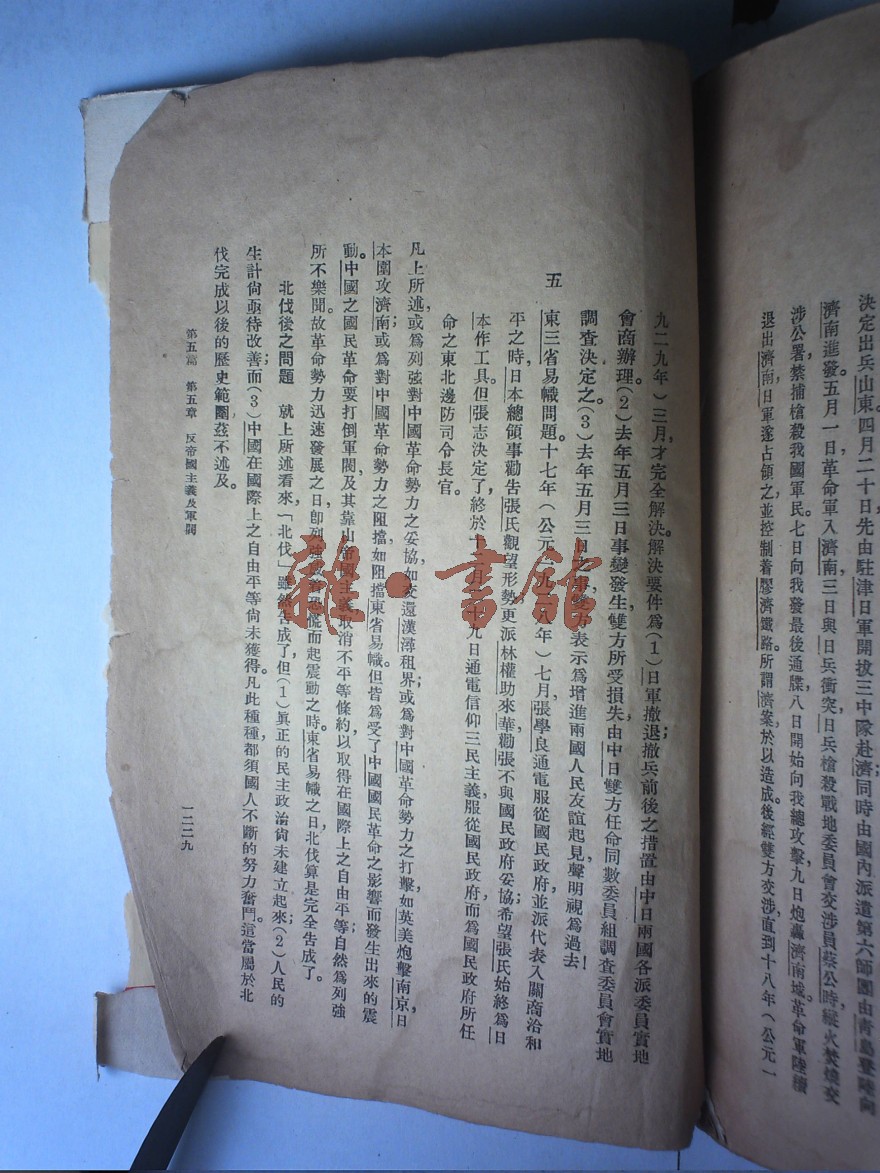 決定出兵山東。四月二十日先由駐津日軍開拔三中隊赴濟;同時由國內派遣第六師團由青島登陸向
濟南進發。五月一日革命軍入濟南,三日與日兵衝突,日兵槍殺戰地委員會交涉員蔡公時,縱火焚燒交
涉公署,禁捕槍殺我國軍民。七日向我發最後通牒,八日開始向我總攻擊,九日炮轟濟南城。革命軍陸續
退出濟南,日軍遂占領之,並控制着膠濟鐵路。所謂濟案,於以造成。後經雙方交涉,直到十八年(公元一
九二九年)三月,才完全解決。解決要件爲(1)日軍撤退,撤兵前後之措置由中日兩國各派委員實地
會商辦理。(2)去年五月三日事變發生,雙方所受損失,由中日雙方任命同數委員,組調查委員會,實地
調查決定之。(3)去年五月三日之事,雙方表示爲增進兩國人民友誼起見,聲明視爲過去!
五 東三省易幟問題。十七年(公元一九二八年)七月,張學良通電服從國民政府,並派代表入關商洽和
平之時,日本總領事勸吿張氏觀望形勢,更派林權助來華,勸張不與國民政府妥協,希望張氏始終爲日
本作工具。但張志決定了,終於十二月二十九日通電信仰三民主義,服從國民政府,而爲國民政府所任
命之東北邊防司令長官。
凡上所述,或爲列強對中國革命勢力之妥協,如交還漢潯租界;或爲對中國革命勢力之打擊,如英美炮擊南京,日
本圍攻濟南;或爲對中國革命勢力之阻擋,如阻擋東省易幟。但皆爲受了中國國民革命之影響而發生出來的震
動。中國之國民革命要打倒軍閥,及其靠山帝國主義,取消不平等條約,以取得在國際上之自由平等,自然爲列強
所不樂聞。故革命勢力迅速發展之日,卽列強恐慌而起震動之時。東省易幟之日,北伐算是完全告成了。
北伐後之問題 就上所述看來,「北伐」雖然告成了,但(1)眞正的民主政治尙未建立起來;(2)人民的
生計尙亟待改善;而(3)中國在國際上之自由平等尙未獲得。凡此種種,都須國人不斷的努力奮鬥。這當屬於北
伐完成以後的歷史範圍,茲不述及。
第五篇 第五章 反帝國主義及軍閥
一二二九
雜·書館